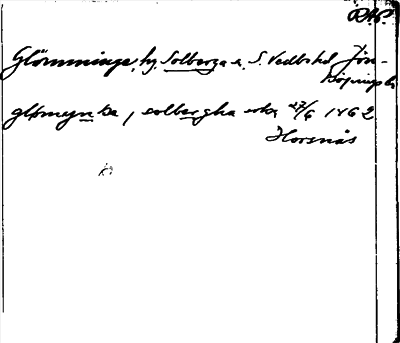 RAP
Glömminge, by, Solberga s. S. Vedbo hd Jön-
köpings l.
glömynke, solbergha sokn 27/6 1462
Horsnäs